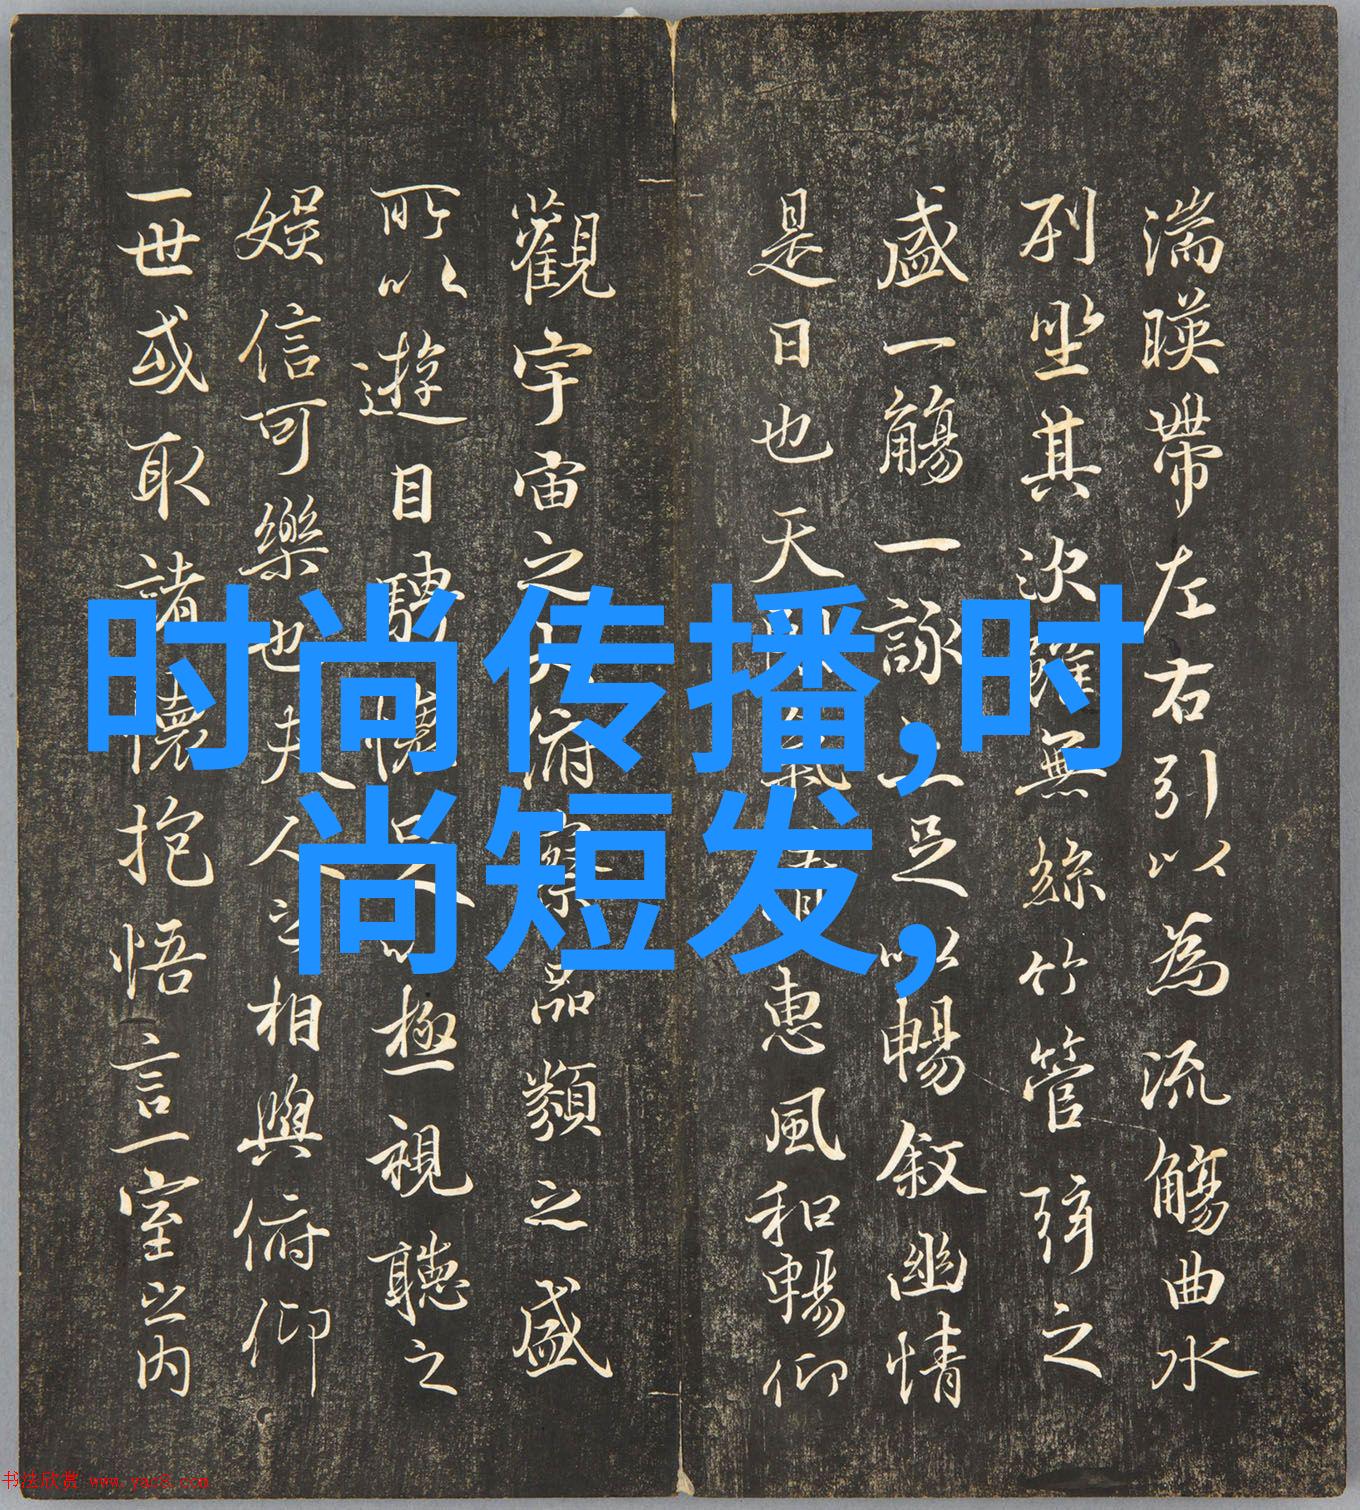 湍暎帶左右引以為流觴曲水
列坐其次雖無絲竹管弦之
盛一觴一詠亦足以暢敘幽情
是日也天朗氣清惠風和暢仰
觀宇宙之大俯察品類之盛
所以遊目騁懷足以極視聽之
娛信可樂也夫人之相與俯仰
一世或取諸懷抱悟言一室之内
时尚传播,时
尚短发,
书法欣赏 www.yac8.com